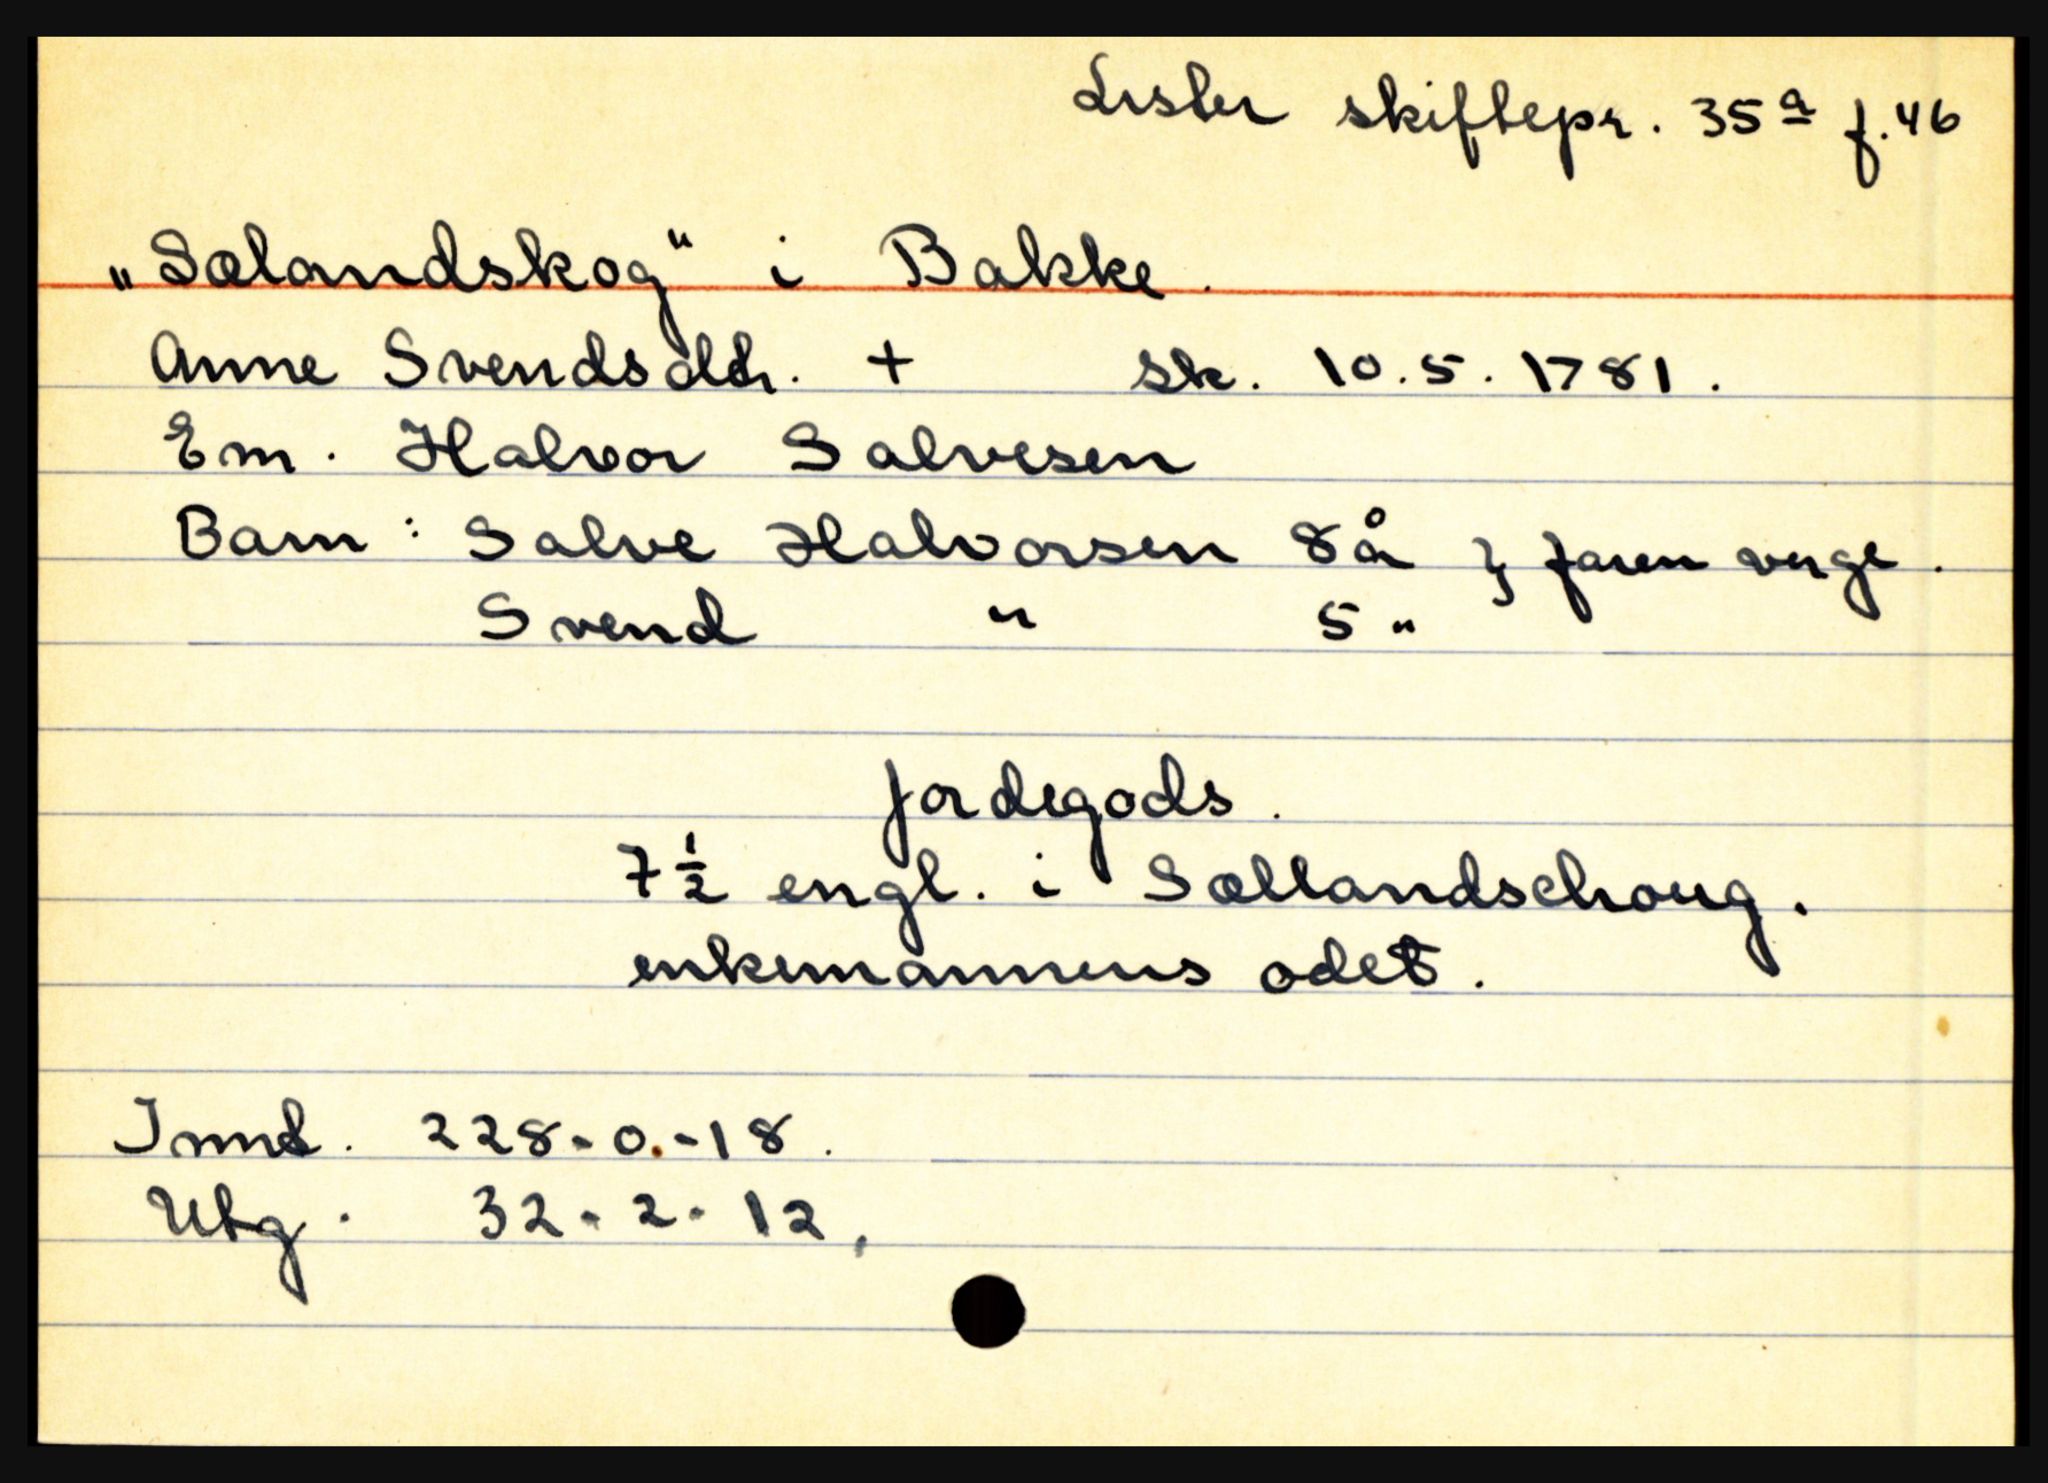 Lister skiftepr. 35a f.46
„Sælandskog" i Bakke.
Anne Svendsdtr. + sk. 10.5.1781.
Em. Halvor Salvesen
Barn: Salve Halvorsen 8 år } faren verge.
Svend " 5 "
Jordegods.
7 1/2 engl. i Sællandschoug.
enkemannens odel.
Innt. 228-0-18.
Utg. 32-2-12.